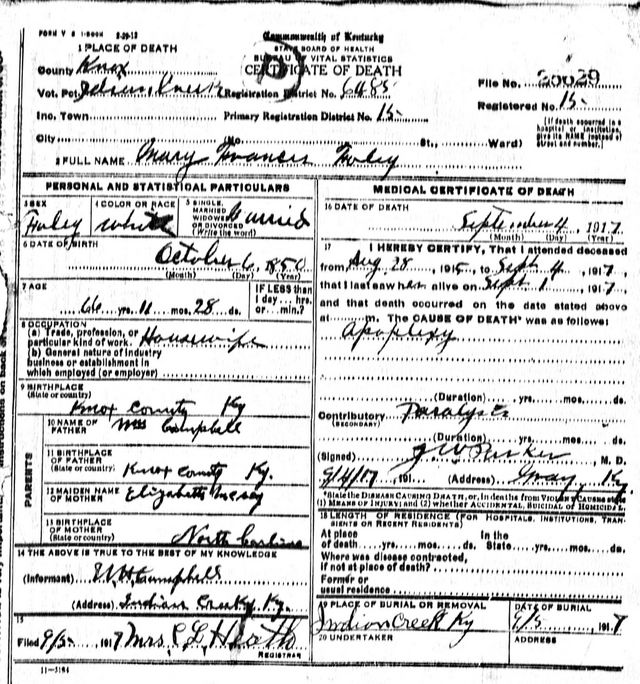 FORM V S 1-500M 9-29-13
Commonwealth of Kentucky
STATE BOARD OF HEALTH
BUREAU OF VITAL STATISTICS
CERTIFICATE OF DEATH
1 PLACE OF DEATH
County Knox
Vot. Pct. Registration District No. 6485
File No. 20029
Registered No. 15
Inc. Town Primary Registration District No. 15
(If death occurred in a hospital or institution, give its NAME instead of street and number.)
City (No. St., Ward)
2 FULL NAME Mary Frances Foley
PERSONAL AND STATISTICAL PARTICULARS
3 SEX Foley
4 COLOR OR RACE White
5 SINGLE, MARRIED WIDOWED OR DIVORCED (Write the word) Married
6 DATE OF BIRTH October 6, 1850
(Month) (Day) (Year)
7 AGE 66 yrs. 11 mos. 28 ds.
IF LESS than 1 day... hrs. or... min.?
8 OCCUPATION
(a) Trade, profession, or particular kind of work. Housewife
(b) General nature of industry
business or establishment in
which employed (or employer)
9 BIRTHPLACE
(State or country) Knox County Ky
PARENTS
10 NAME OF FATHER Campbell
11 BIRTHPLACE OF FATHER
(State or country) Knox County Ky.
12 MAIDEN NAME OF MOTHER Elizabeth
13 BIRTHPLACE OF MOTHER
(State or country) North Carolina
14 THE ABOVE IS TRUE TO THE BEST OF MY KNOWLEDGE
(Informant) W H Campbell
(Address) Indian Creek, Ky.
15
Filed 9/5- 1917 Mrs. Heath
REGISTRAR
11-3184
MEDICAL CERTIFICATE OF DEATH
16 DATE OF DEATH
September 4, 1917
(Month) (Day) (Year)
17 I HEREBY CERTIFY, That I attended deceased
from Aug 28, 1915, to Sept 4, 1917,
that I last saw her alive on Sept 1, 1917,
and that death occurred on the date stated above
at m. The CAUSE OF DEATH* was as follows:
Apoplexy
(Duration) yrs. mos. ds.
Contributory Paralysis
(SECONDARY)
(Duration) yrs. mos. ds.
(Signed) J W Parker, M. D.
9/4/17, 191 (Address) Gray, Ky
*State the DISEASE CAUSING DEATH, or, in deaths from VIOLENT CAUSES state
(1) MEANS OF INJURY; and (2) whether ACCIDENTAL, SUICIDAL or HOMICIDAL.
18 LENGTH OF RESIDENCE (FOR HOSPITALS, INSTITUTIONS, TRANSIENTS OR RECENT RESIDENTS)
At place of death yrs. mos. ds. In the State yrs. mos. ds.
Where was disease contracted,
if not at place of death?
Former or
usual residence
19 PLACE OF BURIAL OR REMOVAL Indian Creek Ky
DATE OF BURIAL 9/5 1917
20 UNDERTAKER
ADDRESS